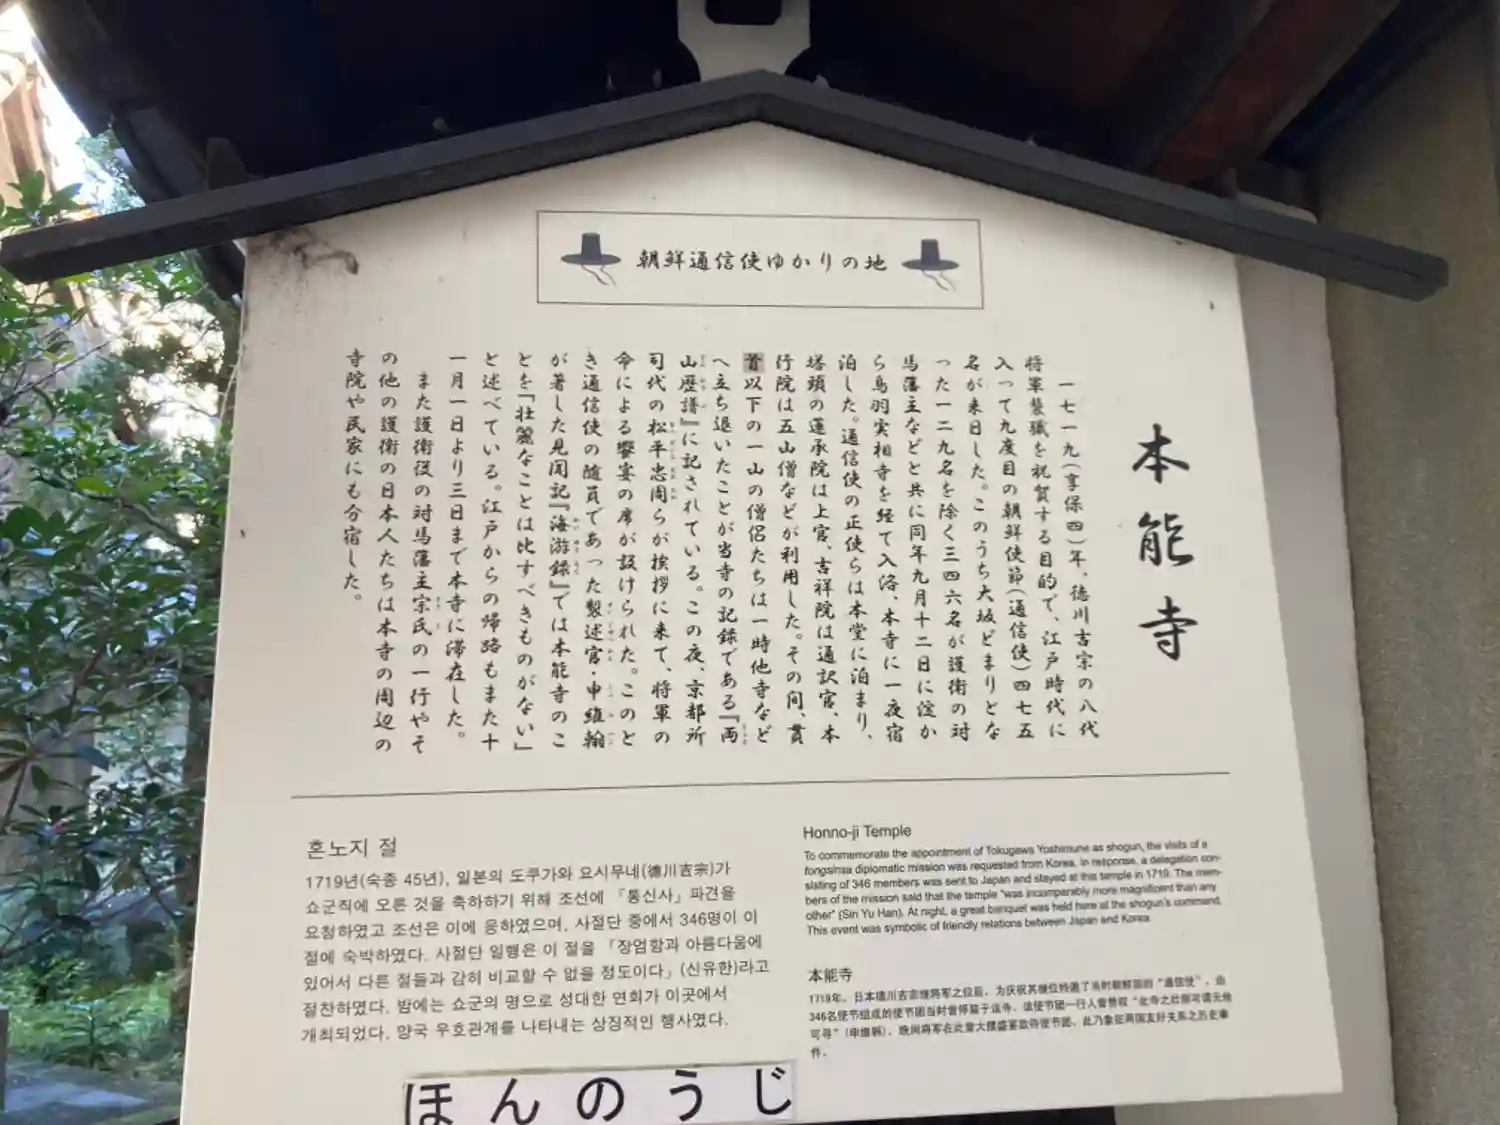 朝鮮通信使ゆかりの地
本能寺
一七一九(享保四)年、徳川吉宗の八代
将軍襲職を祝賀する目的で、江戸時代に
入って九度目の朝鮮使節(通信使)四七五
名が来日した。このうち大坂どまりとな
った一二九名を除く三四六名が護衛の対
馬藩主などと共に同年九月十二日に淀か
ら鳥羽実相寺を経て入洛、本寺に一夜宿
泊した。通信使の正使らは本堂に泊まり、
塔頭の蓮承院は上官、吉祥院は通訳官、本
行院は五山僧などが利用した。その間、貫
首以下の一山の僧侶たちは一時他寺など
へ立ち退いたことが当寺の記録である『両
山歴譜』に記されている。この夜、京都所
司代の松平忠周らが挨拶に来て、将軍の
命による饗宴の席が設けられた。このと
き通信使の随員であった製述官・申維翰
が著した見聞記『海游録』では本能寺のこ
とを「壮麗なことは比すべきものがない」
と述べている。江戸からの帰路もまた十
一月一日より三日まで本寺に滞在した。
また護衛役の対馬藩主宗氏の一行やそ
の他の護衛の日本人たちは本寺の周辺の
寺院や民家にも分宿した。
혼노지 절
1719년(숙종 45년), 일본의 도쿠가와 요시무네(德川吉宗)가
쇼군직에 오른 것을 축하하기 위해 조선에 「통신사」파견을
요청하였고 조선은 이에 응하였으며, 사절단 중에서 346명이 이
절에 숙박하였다. 사절단 일행은 이 절을 「장엄함과 아름다움에
있어서 다른 절들과 감히 비교할 수 없을 정도이다」(신유한)라고
절찬하였다. 밤에는 쇼군의 명으로 성대한 연회가 이곳에서
개최되었다. 양국 우호관계를 나타내는 상징적인 행사였다.
Honno-ji Temple
To commemorate the appointment of Tokugawa Yoshimune as shogun, the visits of a
tongsinsa diplomatic mission was requested from Korea. In response, a delegation con-
sisting of 346 members was sent to Japan and stayed at this temple in 1719. The mem-
bers of the mission said that the temple "was incomparably more magnificent than any
other" (Sin Yu Han). At night, a great banquet was held here at the shogun's command.
This event was symbolic of friendly relations between Japan and Korea.
本能寺
1719年，日本德川吉宗继将军之位后，为庆祝其继位特邀了当时朝鲜国的“通信使”，由
346名使节组成的使节团当时曾停留于该寺。该使节团一行人曾赞叹“此寺之壮丽可谓无他
可寻”(申维翰)。晚间将军在此曾大摆盛宴款待使节团，此乃象征两国友好关系之历史事
件。
ほんのうじ